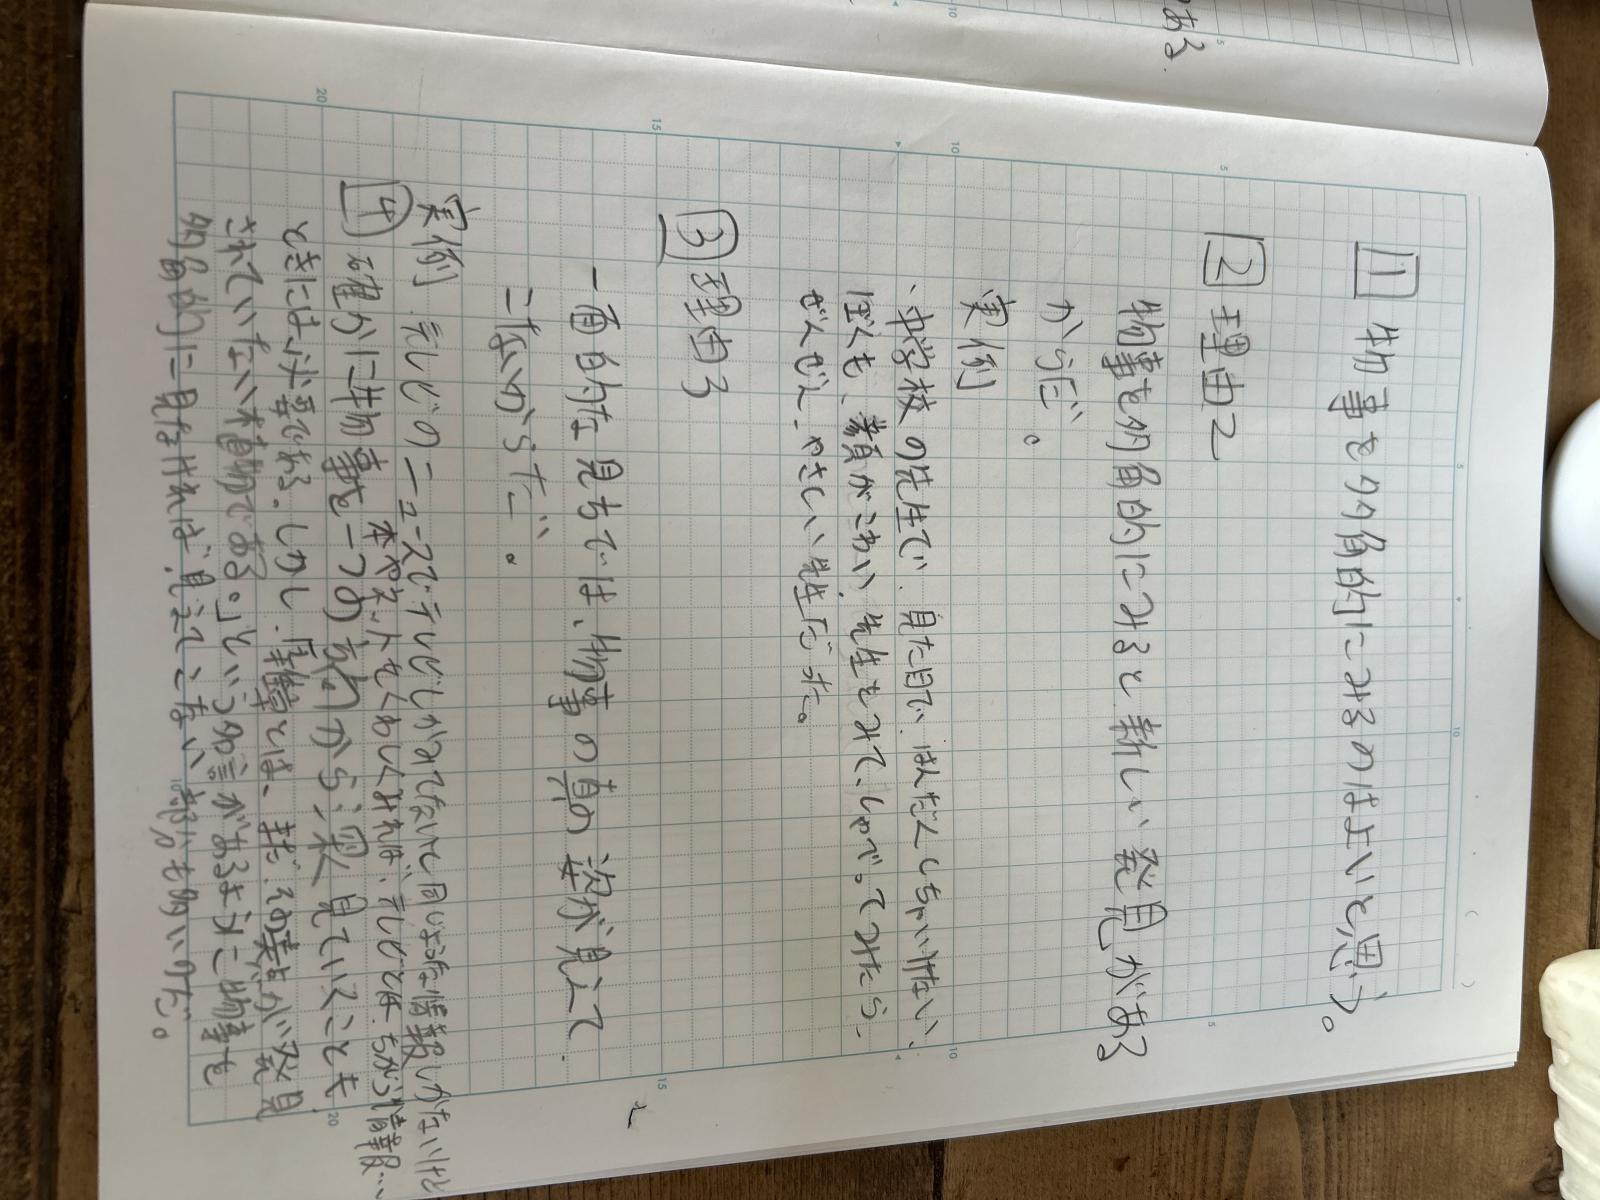 ある.
1 物事を多角的にみるのはよいと思う。
2 理由2
物事を多角的にみると新しい発見がある
からだ。
実例
・中学校の先生で、見た目で、はんだんしちゃいけない、
ぼくも、顔がこわい先生をみて、しゃべってみたら、
ぜんぜん、やさしい先生だった。
3 理由3
一面的な見方では、物事の真の姿が見えて
こないからだ。
実例 テレビのニュースでテレビしかみてないと同じような情報しかないけど
本やネットもくわしくみれば、テレビとは、ちがう情報…
4 確かに物事を一つの方向から深く見ていくことも
ときには必要である。しかし、「雑草とは、まだ、その美点が発見
されていない植物である。」という名言があるように物事を
多角的に見なければ、見えてこない部分も多いのだ。